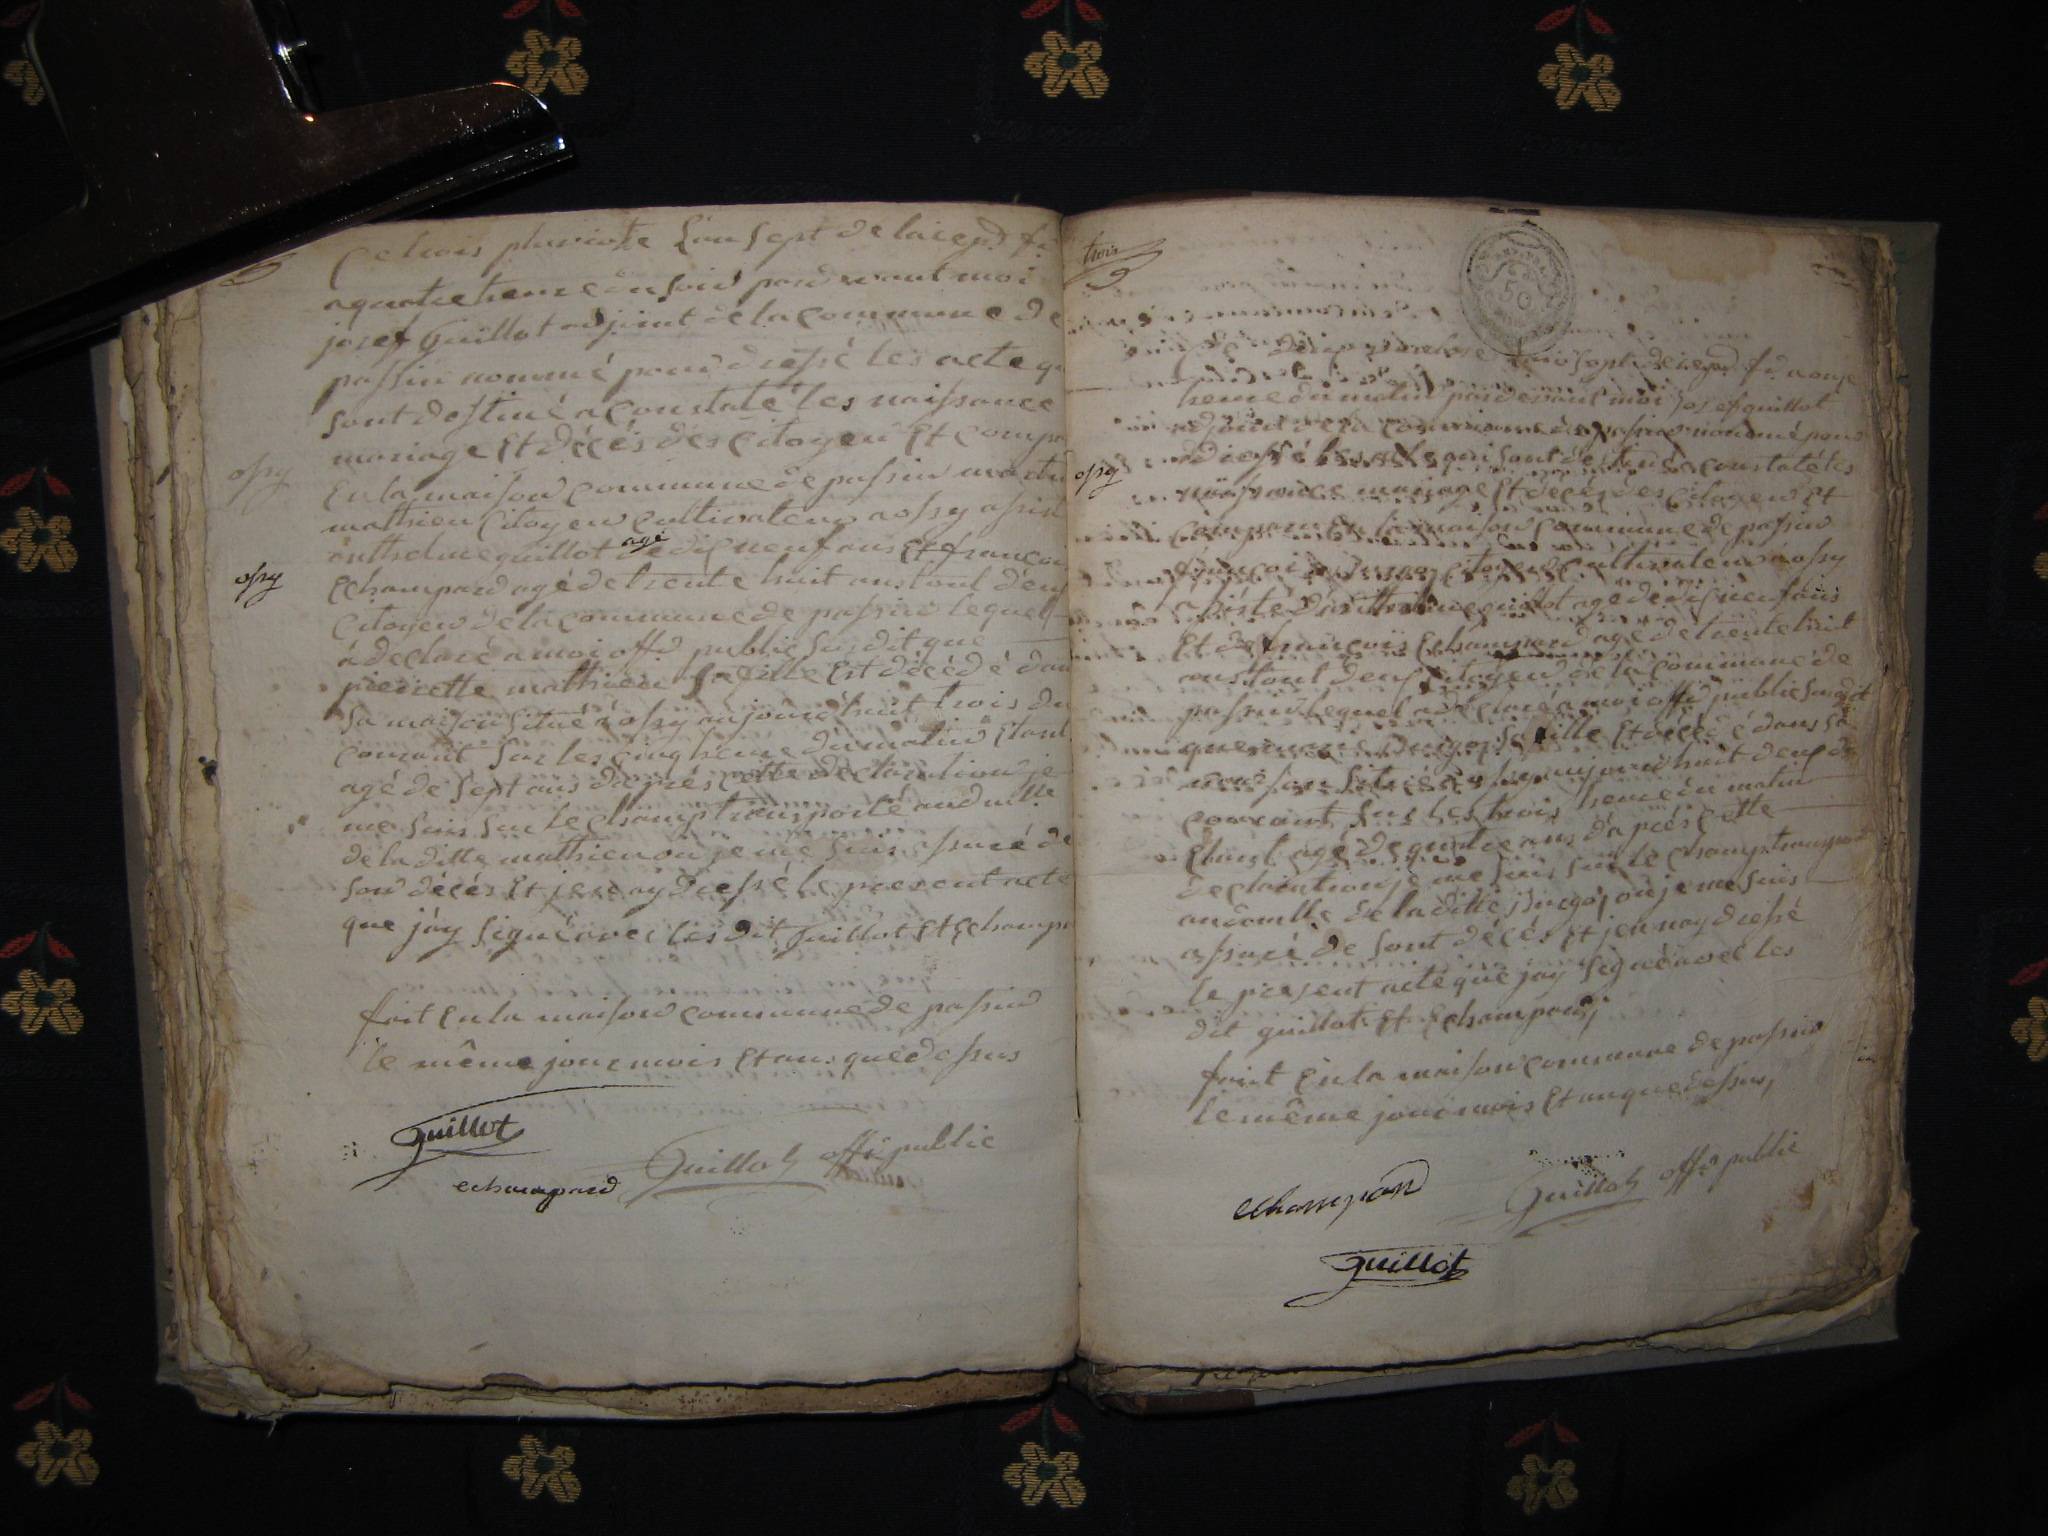 Ce trois pluviose L'an sept de la repd. fr.
a quatre heure du soir pard vant moi
josef Guillot adjoint de la commune de
passin nommé pour dressé les acte q
sont destiné a constaté les naissance
mariage Et décés des citoyen Et compa
En la maison commune de passin
mathieu citoyen cultivateur a ossy assist
anthelme guillot agé de dix neuf ans Et francoi
Echampard agé de trente huit ans tout deux
citoyen de la commune de passin lequel
à declaré a moi offr public sus dit que
pierrette mathieu sa fille Est décédé dan
sa maison situé a ossy aujourd'huit trois du
courant sur les cinq heure du matin Etant
agé de sept ans d'aprés cette declaration je
me suis sur le champ transporté au dmlle
de la ditte mathieu ou je me suis assuré de
son décés Et jen ay dressé le present acte
que j'ay signé avec les dit guillot Et Echampa
fait En la maison commune de passin
le même jour mois Et ans que dessus
Guillot
echampard Guillot offr public
ossy
ossy
trois
50
L'an sept de repd. fr. a onze
heure du matin pardevant moi josef guillot
adjoint de la commune de passin nommé pour
dressé les acte qui sont destiné a constaté les
naissance mariage Et décés des citoyen Et
comparu En la maison commune de passin
francoi citoyen cultivateur a ossy
assisté d'anthelme guillot agé de dix neuf ans
Et de francois Echampard agé de trente huit
ans tout deux citoyen de la commune de
passin lequel a declaré a moi offr public susdit
que sa fille Et décédé dans sa
maison situé a ossy aujourd'huit deux du
courant sur les trois heure du matin
Etant agé de quatre ans d'aprés cette
declaration je me suis sur le champ transporté
au dmlle de la ditte ou je me suis
assuré de sont décés Et jen nay dressé
le present acte que jay signé avec les
dit guillot Et Echampard
fait En la maison commune de passin
le même jour mois Et an que dessus
echampard Guillot offr public
Guillot
ossy